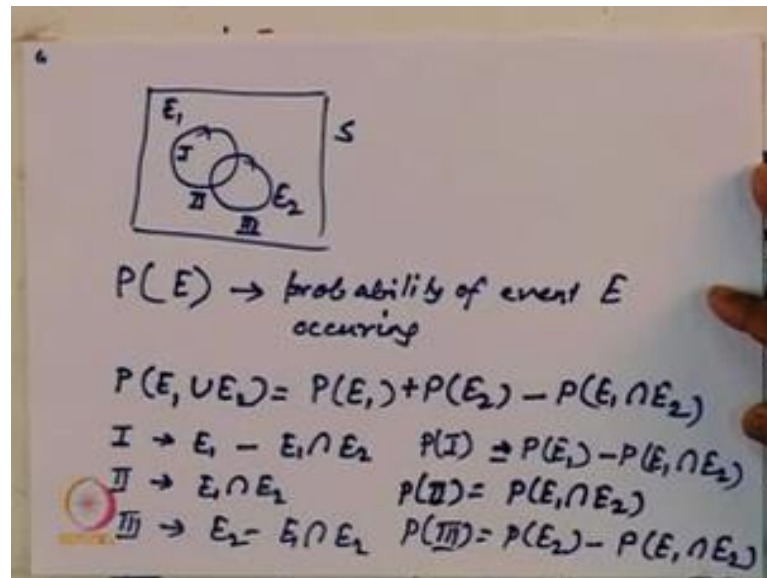 6
E₁
S
I
II
E₂
III
P(E) → probability of event E
occuring
P(E₁ ∪ E₂) = P(E₁) + P(E₂) - P(E₁ ∩ E₂)
I → E₁ - E₁ ∩ E₂ P(I) = P(E₁) - P(E₁ ∩ E₂)
II → E₁ ∩ E₂ P(II) = P(E₁ ∩ E₂)
III → E₂ - E₁ ∩ E₂ P(III) = P(E₂) - P(E₁ ∩ E₂)